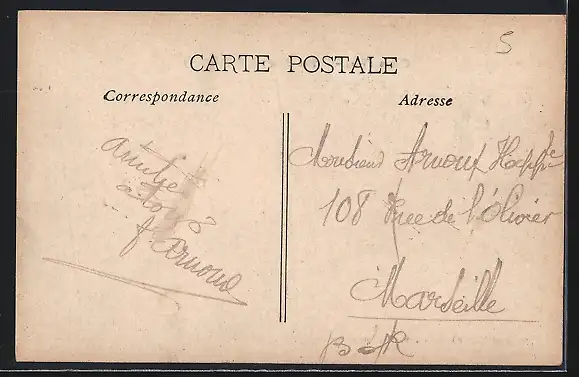 5
CARTE POSTALE
Correspondance
Adresse
Amitié
a tous
J. Arnoux
Monsieur Arnoux
108 Rue de l'Olivier
Marseille
B d R